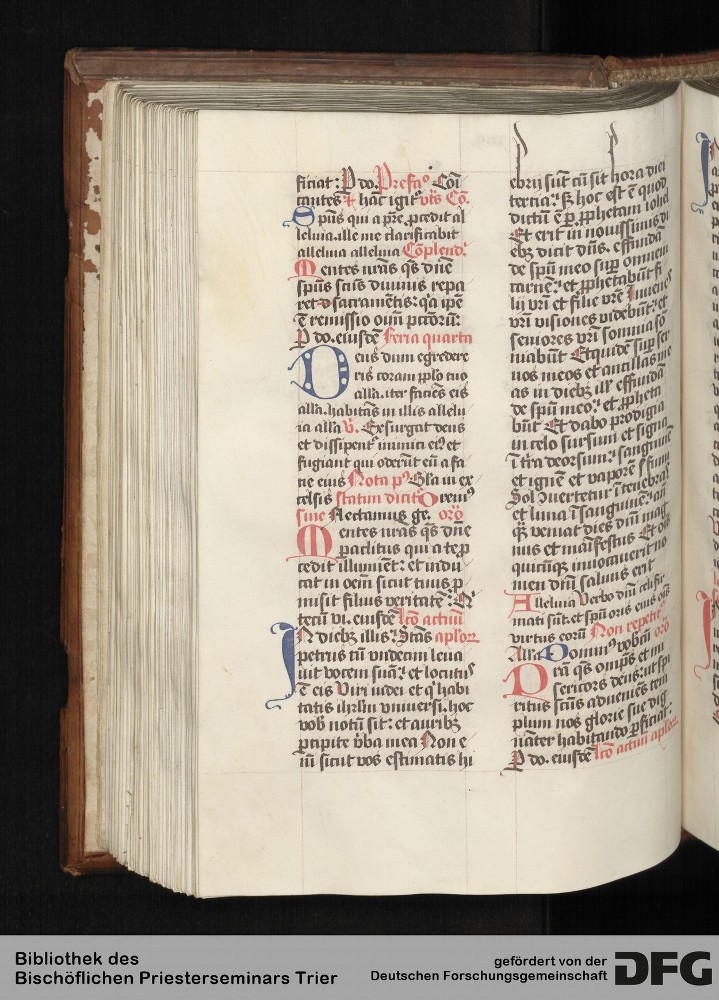 ficiat: P do. Prefaᵒ Cōi
cantes ⁊ hāc igit᷑ vts Cō.
Spūs qui a pr̄e p̄cedit al
leluia. ille me clarificabit
alleluia alleluia Cōplend᷑
Mentes nr̄as q̄s dn̄e
spūs scūs diuinis repa
ret sacramētis: q᷑a ip̄e
ē remissio oīm pctōrū:
P do. eiusdē Feria quarta
Deus dum egredere
ris coram pplo tuo
alla. iter faciēs eis
alla. habitās in illis allelu
ia alla v̄. Exsurgat deus
et dissipent᷑ inimici eiꝰ et
fugiant qui oderūt eū a fa
cie eius Nota pꝰ Gl̄a in ex
celsis statim dicit᷑ Oremꝰ
sine Flectamus ge. orō
Mentes nr̄as q̄s dn̄e
paclitus qui a te p̄
cedit illumiet: et indu
cat in oēm sicut tuus p̄
misit filius veritatē: Q
tecū vi. eiusdē Lcō actuū
In diebꝫ illis: Stās aploꝝ
petrus cū vndecim leua
uit vocem suā: et locutꝰ
ē eis Viri iudei et q᷑ habi
tatis ihrl̄m vniuersi. hoc
vob᷑ notū sit: et auribꝫ
p̄cipite v̄ba mea Non e
iū sicut vos estimatis hi
ebrij sūt cū sit hora diei
tertia: sꝫ hoc est qd̄ quod
dictū ē p̄ pphetam iohel
Et erit in nouissimis di
ebꝫ dicit dn̄s. effundā
de spū meo sup̄ omnem
carnē: et pphetabūt fi
lij vr̄i et filie vr̄e Iuuenes
vr̄i visiones videbūt: et
seniores vr̄i somnia sō
niabūt Et quidē sup̄ ser
uos meos et ancillas me
as in diebꝫ ill᷑ effundā
de spū meo: et ppheta
būt Et dabo prodigia
in celo sursum et signa
ī tr̄a deorsum: sanguinē
et ignē et vaporē fumi
Sol ꝯuertetur ī tenebras
et luna ī sanguinē: an
q̄ veniat dies dn̄i mag
nus et māifestus Et ois
quicūqꝫ inuocauerit no
men dn̄i saluus erit
Alleluia Verbo dn̄i celi fir
mati sūt. et spū oris eius ois
virtus eorū Non repetit᷑
Alla Dominꝰ vobcū orō
Pr̄a q̄s omps et mi
sericors deus: ut spi
ritus scūs adueniēs tem
plum nos glorie sue dig
nāter habitando p̄ficiat:
P do. eiusdē Lcō actuū aploꝝ
Bibliothek des
Bischöflichen Priesterseminars Trier
gefördert von der
Deutschen Forschungsgemeinschaft
DFG